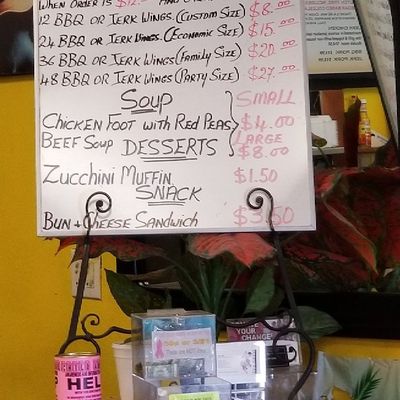 WHEN ORDER IS $12.
12 BBQ OR JERK WINGS.(CUSTOM SIZE) $8.00
24 BBQ OR JERK WINGS.(ECONOMIC SIZE) $15.00
36 BBQ OR JERK WINGS (FAMILY SIZE) $20.00
48 BBQ OR JERK WINGS (PARTY SIZE) $27.00
SOUP SMALL
CHICKEN FOOT WITH RED PEAS $4.00
BEEF SOUP LARGE
DESSERTS $8.00
ZUCCHINI MUFFIN $1.50
SNACK
BUN + CHEESE SANDWICH $3.50
YOUR
CHANGE
HEL